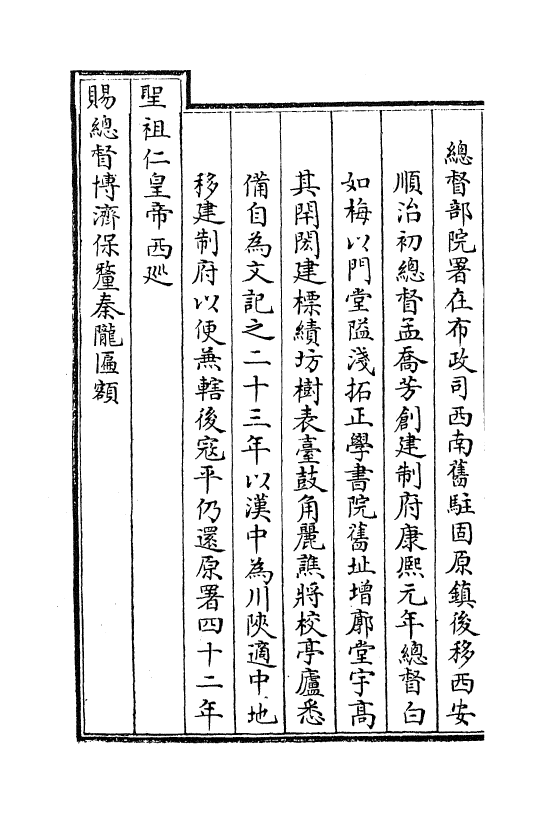 總督部院署在布政司西南舊駐固原鎮後移西安
順治初總督孟喬芳創建制府康熙元年總督白
如梅以門堂隘淺拓正學書院舊址增廓堂宇高
其閈閎建標績坊樹表臺鼓角麗譙將校亭廬悉
備自為文記之二十三年以漢中為川陝適中地
移建制府以便兼轄後寇平仍還原署四十二年
聖祖仁皇帝西巡
賜總督博濟保釐秦隴匾額